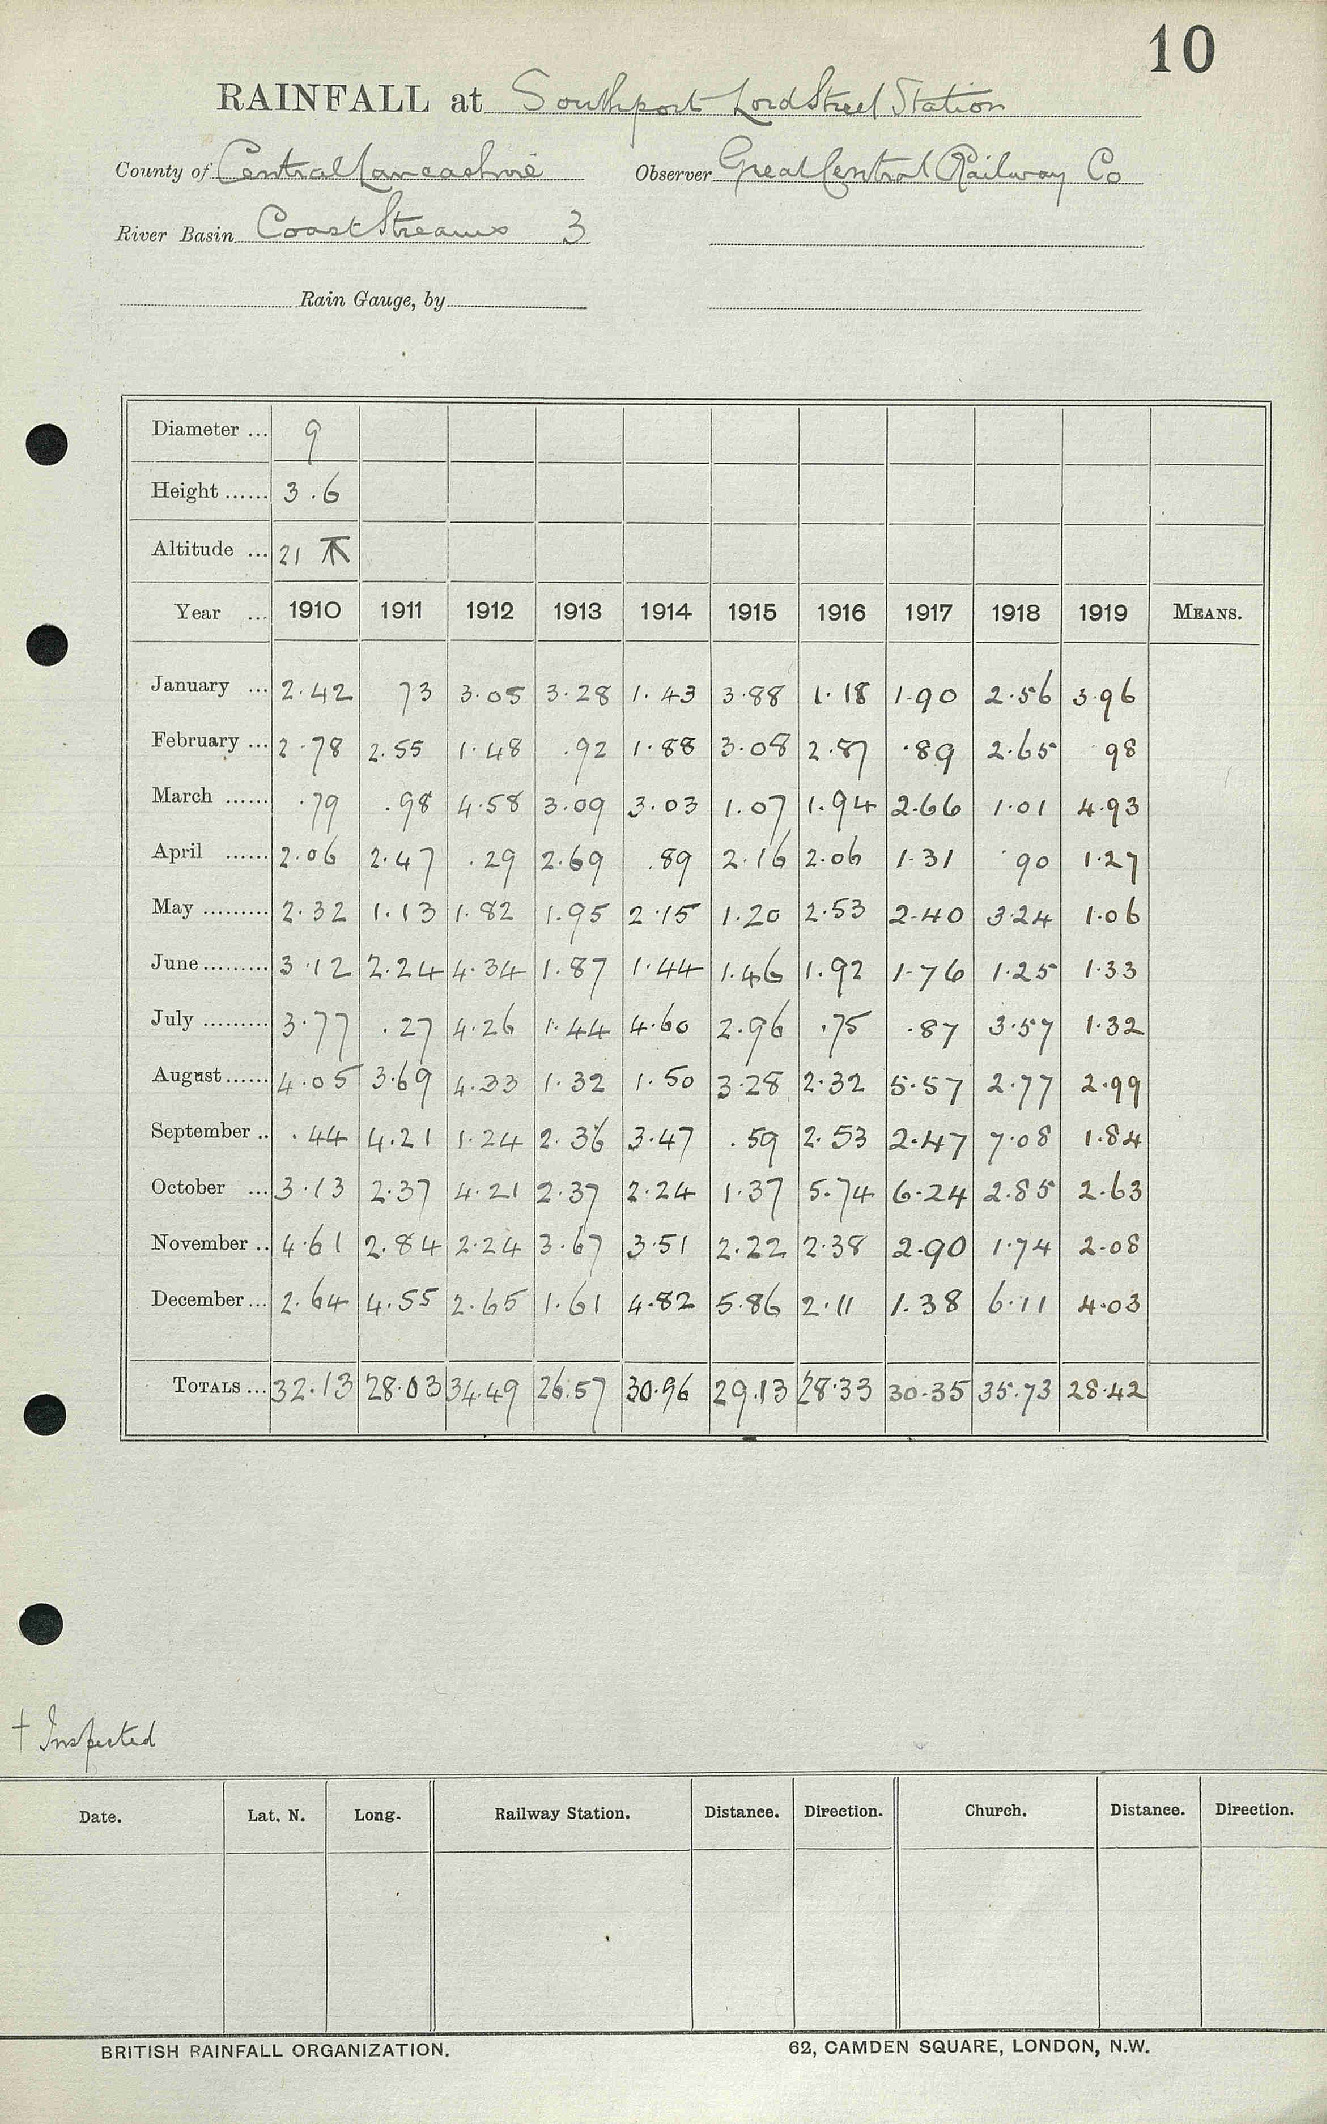 10
RAINFALL at Southport Lord Street Station
County of Central Lancashire Observer Great Central Railway Co
River Basin Coast Streams 3
Rain Gauge, by
Diameter ... 9
Height ...... 3.6
Altitude ... 21
Year ... 1910 1911 1912 1913 1914 1915 1916 1917 1918 1919 MEANS.
January ... 2.42 73 3.05 3.28 1.43 3.88 1.18 1.90 2.56 3.96
February ... 2.78 2.55 1.48 .92 1.88 3.08 2.87 .89 2.65 98
March ...... .79 .98 4.58 3.09 3.03 1.07 1.94 2.66 1.01 4.93
April ...... 2.06 2.47 .29 2.69 .89 2.16 2.06 1.31 .90 1.27
May ......... 2.32 1.13 1.82 1.95 2.15 1.20 2.53 2.40 3.24 1.06
June ......... 3.12 2.24 4.34 1.87 1.44 1.46 1.92 1.76 1.25 1.33
July ......... 3.77 .27 4.26 1.44 4.60 2.96 .75 .87 3.57 1.32
August ...... 4.05 3.69 4.33 1.32 1.50 3.28 2.32 5.57 2.77 2.99
September .. .44 4.21 1.24 2.36 3.47 .59 2.53 2.47 7.08 1.84
October ... 3.13 2.37 4.21 2.37 2.24 1.37 5.74 6.24 2.85 2.63
November .. 4.61 2.84 2.24 3.67 3.51 2.22 2.38 2.90 1.74 2.08
December ... 2.64 4.55 2.65 1.61 4.82 5.86 2.11 1.38 6.11 4.03
TOTALS ... 32.13 28.03 34.49 26.57 30.96 29.13 28.33 30.35 35.73 28.42
† Inspected
Date. Lat. N. Long. Railway Station. Distance. Direction. Church. Distance. Direction.
BRITISH RAINFALL ORGANIZATION. 62, CAMDEN SQUARE, LONDON, N.W.